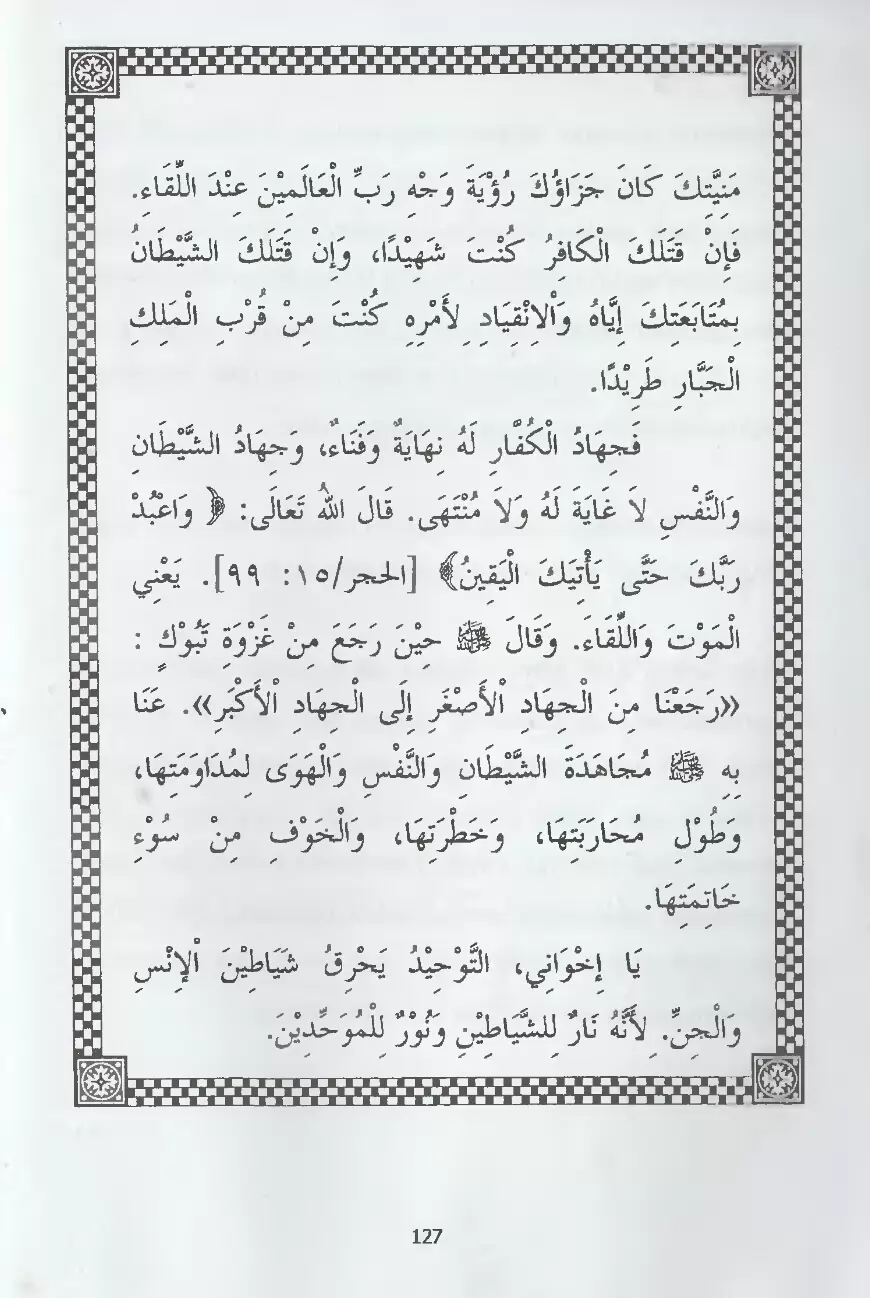 مَنِيَّتِكَ كَانَ جَزَاؤُكَ رُؤْيَةَ وَجْهِ رَبِّ الْعَالَمِيْنَ عِنْدَ اللِّقَاءِ.
فَإِنْ قَتَلَكَ الْكَافِرُ كُنْتَ شَهِيْدًا، وَإِنْ قَتَلَكَ الشَّيْطَانُ
بِمُتَابَعَتِكَ إِيَّاهُ وَالِانْقِيَادِ لِأَمْرِهِ كُنْتَ مِنْ قُرْبِ الْمَلِكِ
الْجَبَّارِ طَرِيْدًا.
فَجِهَادُ الْكُفَّارِ لَهُ نِهَايَةٌ وَفَنَاءٌ، وَجِهَادُ الشَّيْطَانِ
وَالنَّفْسِ لاَ غَايَةَ لَهُ وَلاَ مُنْتَهَى. قَالَ اللهُ تَعَالَى: ﴿ وَاعْبُدْ
رَبَّكَ حَتَّى يَأْتِيَكَ الْيَقِينُ﴾ [الحجر/١٥: ٩٩]. يَعْنِي
الْمَوْتَ وَاللِّقَاءَ. وَقَالَ ﷺ حِيْنَ رَجَعَ مِنْ غَزْوَةِ تَبُوْكٍ :
«رَجَعْنَا مِنَ الْجِهَادِ الْأَصْغَرِ إِلَى الْجِهَادِ الْأَكْبَرِ». عَنَا
بِهِ ﷺ مُجَاهَدَةَ الشَّيْطَانِ وَالنَّفْسِ وَالْهَوَى لِمُدَاوَمَتِهَا،
وَطُوْلِ مُحَارَبَتِهَا، وَخَطْرَتِهَا، وَالْخَوْفِ مِنْ سُوْءِ
خَاتِمَتِهَا.
يَا إِخْوَانِي، التَّوْحِيْدُ يَحْرِقُ شَيَاطِيْنَ الْإِنْسِ
وَالْجِنِّ. لِأَنَّهُ نَارٌ لِلشَّيَاطِيْنِ وَنُوْرٌ لِلْمُوَحِّدِيْنَ.
127